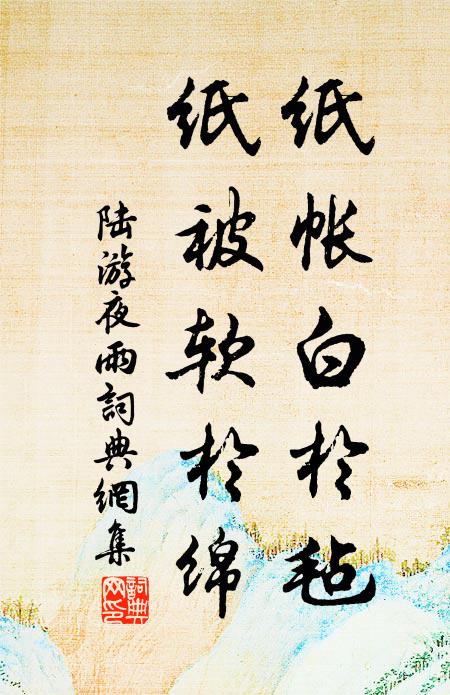 纸帐白於毡
纸被软於绵
陆游夜雨詞典網集
詞典